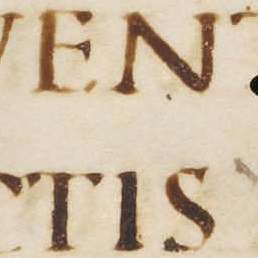 VENT
CTIS